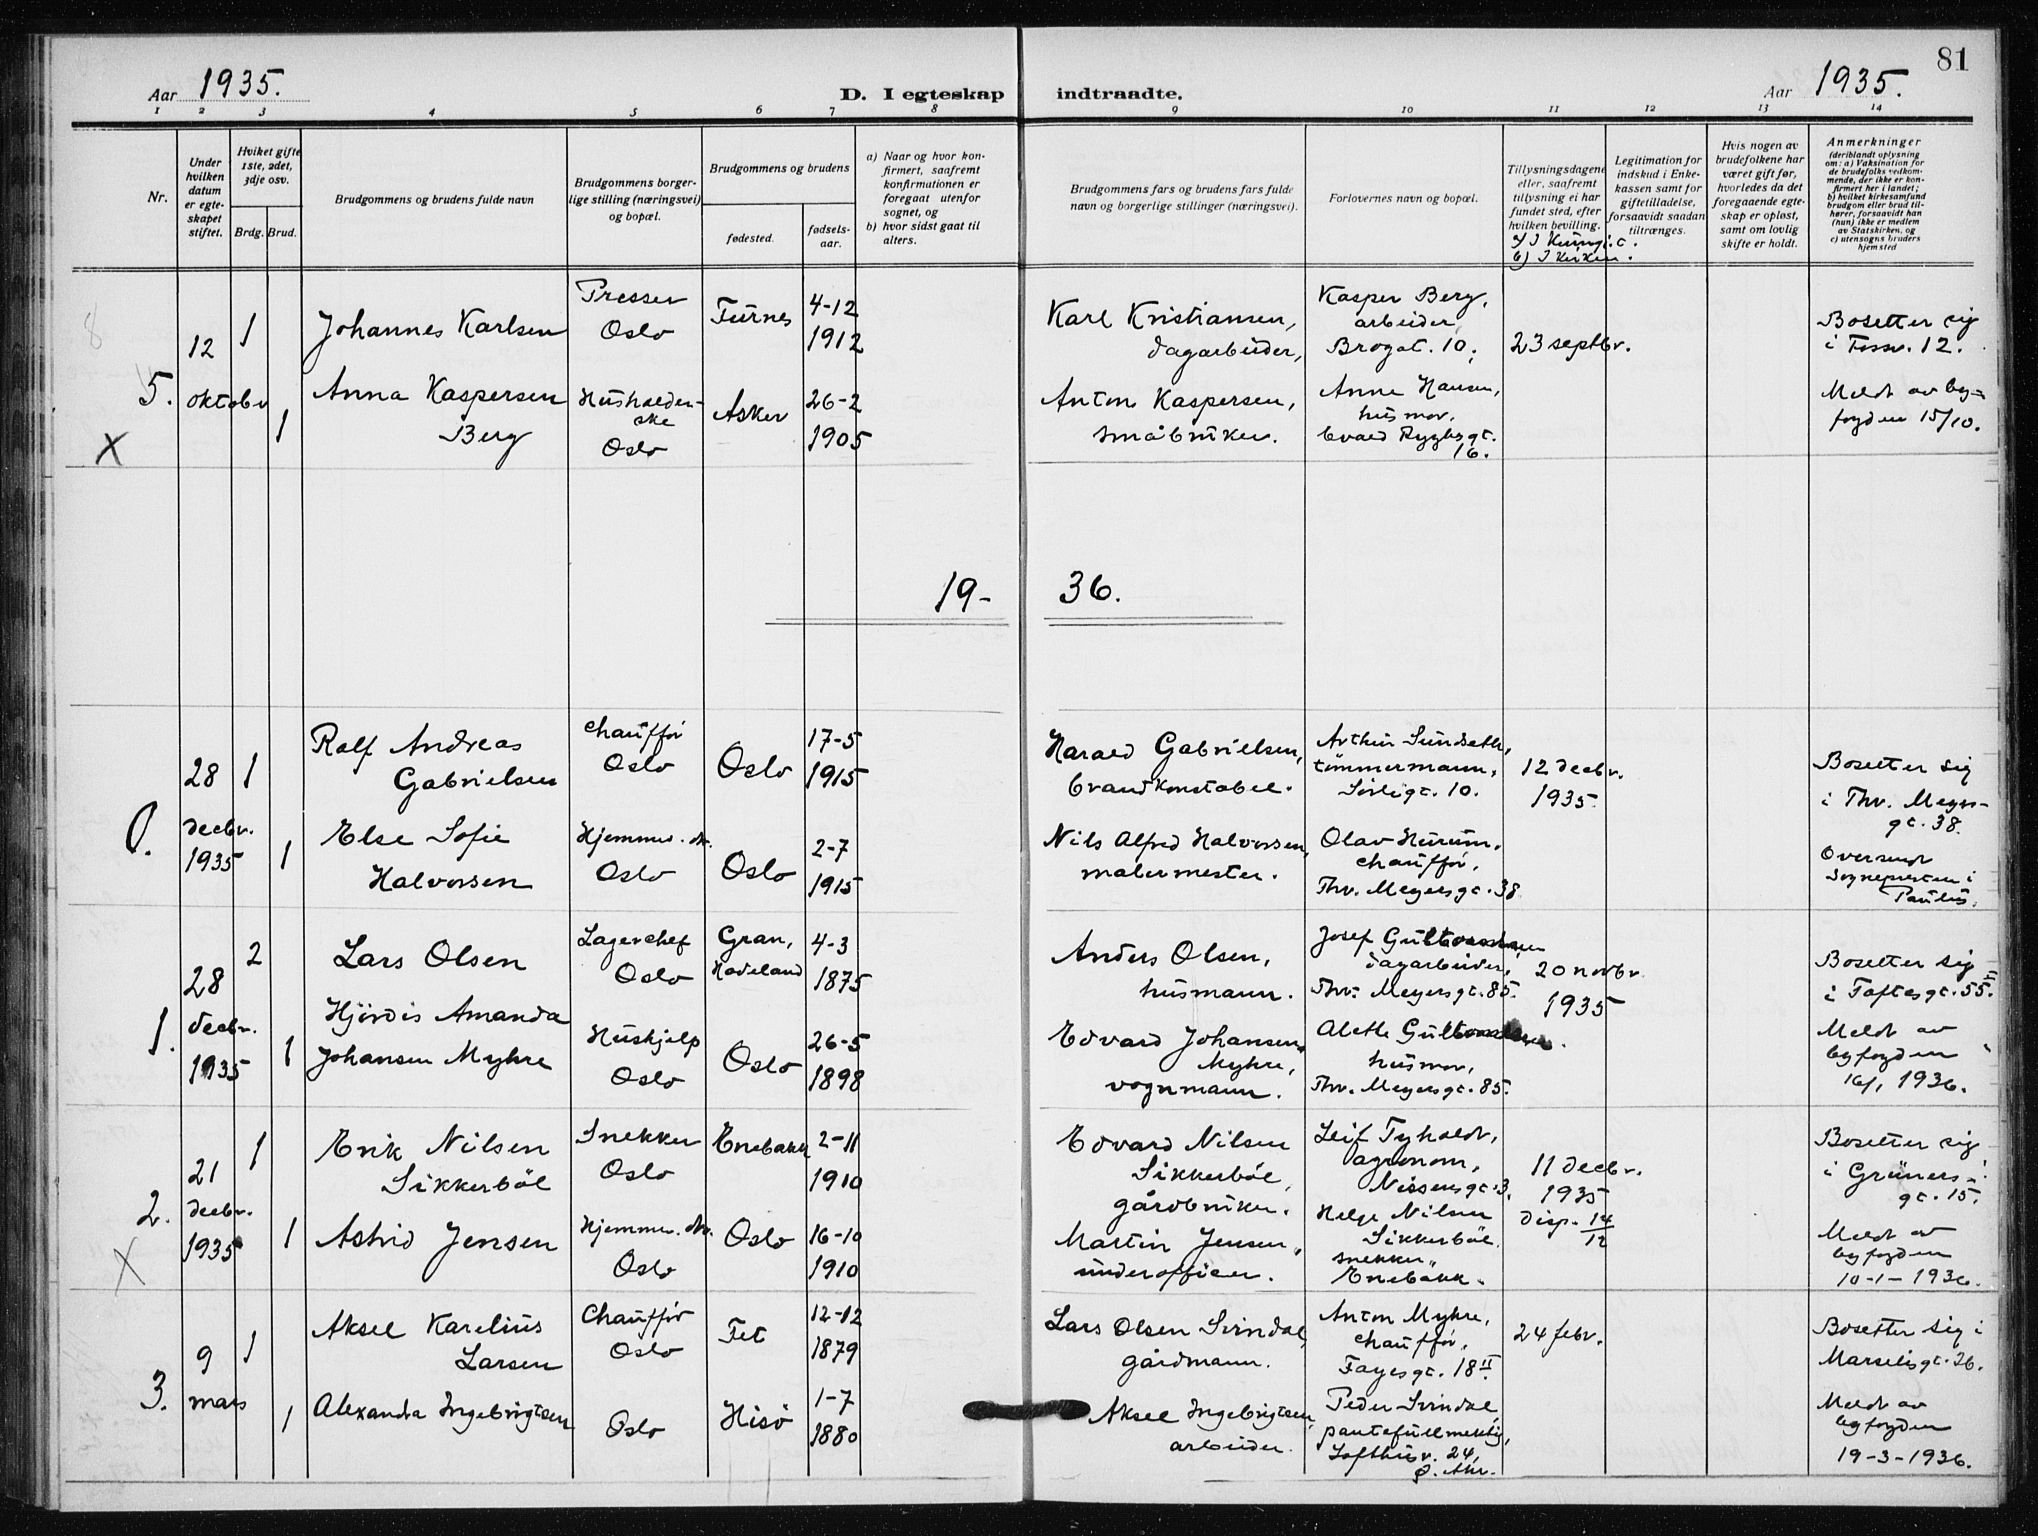 81
Aar 1935.
D. I egteskap indtraadte.
Aar 1935.
1 2 3 4 5 6 7 8 9 10 11 12 13 14
Nr.
Under
hvilken
datum
er egte-
skapet
stiftet.
Hviket gifte
1ste, 2det,
3dje osv.
Brdg. Brud.
Brudgommens og brudens fulde navn
Brudgommens borger-
lige stilling (næringsvei)
og bopæl.
Brudgommens og brudens
fødested.
fødsels-
aar.
a) Naar og hvor kon-
firmert, saafremt
konfirmationen er
foregaat utenfor
sognet, og
b) hvor sidst gaat til
alters.
Brudgommens fars og brudens fars fulde
navn og borgerlige stillinger (næringsvei).
Forlovernes navn og bopæl.
Tillysningsdagene
eller, saafremt
tillysning ei har
fundet sted, efter
hvilken bevilling.
b) I kirken.
Legitimation for
indskud i Enke-
kassen samt for
giftetilladelse,
forsaavidt saadan
tiltrænges.
Hvis nogen av
brudefolkene har
været gift før,
hvorledes da det
foregaaende egte-
skap er opløst,
samt om lovlig
skifte er holdt.
Anmerkninger
(deriblandt oplysning
om: a) Vaksination for
de brudefolks vedkom-
mende, der ikke er kon-
firmert her i landet;
b) hvilket kirkesamfund
brudgom eller brud til-
hører, forsaavidt han
(hun) ikke er medlem
av Statskirken, og
c) utensogns bruders
hjemsted
8
5.
X
12
oktobr
1
1
Johannes Karlsen
Anna Kaspersen
Berg
Presser
Oslo
Husholder-
ske
Oslo
Furnes
Asker
4-12
1912
26-2
1905
Karl Kristiansen,
dagarbeider,
Anton Kaspersen,
småbruker.
Kasper Berg,
arbeider,
Brogat. 10,
Anne Hansen,
husmor,
16.
23 septbr.
Bosetter sig
i Fossv. 12.
Meldt av by-
fogden 15/10.
19-36.
0.
28
decbr.
1935
1
1
Rolf Andreas
Gabrielsen
Else Sofie
Halvorsen
Chauffør
Oslo
Hjemmev. dt.
Oslo
Oslo
Oslo
17-5
1915
2-7
1915
Harald Gabrielsen,
brandkonstabel.
Nils Alfred Halvorsen,
malermester.
Arthur Sundseth,
tømmermann,
Sørligt. 10.
Olav Hurum,
chauffør,
Thv. Meyersgt. 38
12 decbr.
1935.
Bosetter sig
i Thv. Meyers-
gt. 38.
Oversendt
Sognepresten i
Paulus.
1.
28
decbr.
1935
2
1
Lars Olsen
Hjördis Amanda
Johansen Myhre
Lagerchef
Oslo
Hushjelp
Oslo
Gran,
Hadeland
Oslo
4-3
1875
26-5
1898
Anders Olsen,
husmann.
Edvard Johansen
Myhre,
vognmann.
Josef
dagarbeider,
Thv. Meyersgt. 85.
Alette
husmor,
Thv. Meyersgt. 85.
20 novbr.
1935
Bosetter sig
i Toftesgt. 55.
Meldt av
byfogden
16/1 1936.
2.
X
21
decbr.
1935
1
1
Erik Nilsen
Sikkerböl
Astrid Jensen
Snekker
Oslo
Hjemmev. dtr.
Oslo
Enebakk
Oslo
2-11
1910
16-10
1910
Edvard Nilsen
Sikkerböl,
gårdbruker.
Martin Jensen,
underofficer.
Leif Tyholdt,
agronom,
Nissensgt. 3.
Helge Nilsen
Sikkerböl
snekker,
Enebakk.
11 decbr.
1935
disp. 14/12
Bosetter sig
i Grüners-
gt. 15.
Meldt av
byfogden
10-1-1936.
3.
9
mars
1
1
Aksel Karelius
Larsen
Alexandra Ingebrigtsen
Chauffør
Oslo
Oslo
Fet
Hisø
12-12
1879
1-7
1880
Lars Olsen Svindal,
gårdmann.
Aksel Ingebrigtsen,
arbeider.
Anton Myhre,
chauffør,
Fayesgt. 18 II.
Peder Svindal,
Lofthusv. 24,
Ø. Akr.
24 febr.
Bosetter sig i
Marselisgt. 26.
Meldt av
byfogden
19-3-1936.